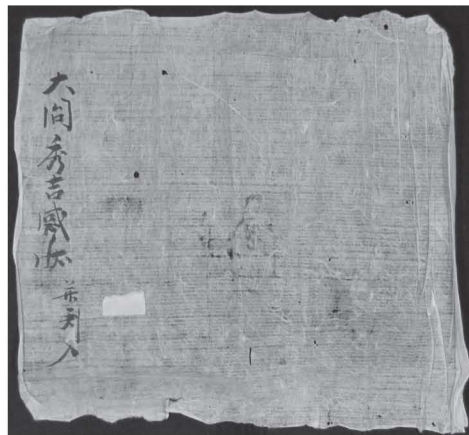 大閤秀吉感状 并判入